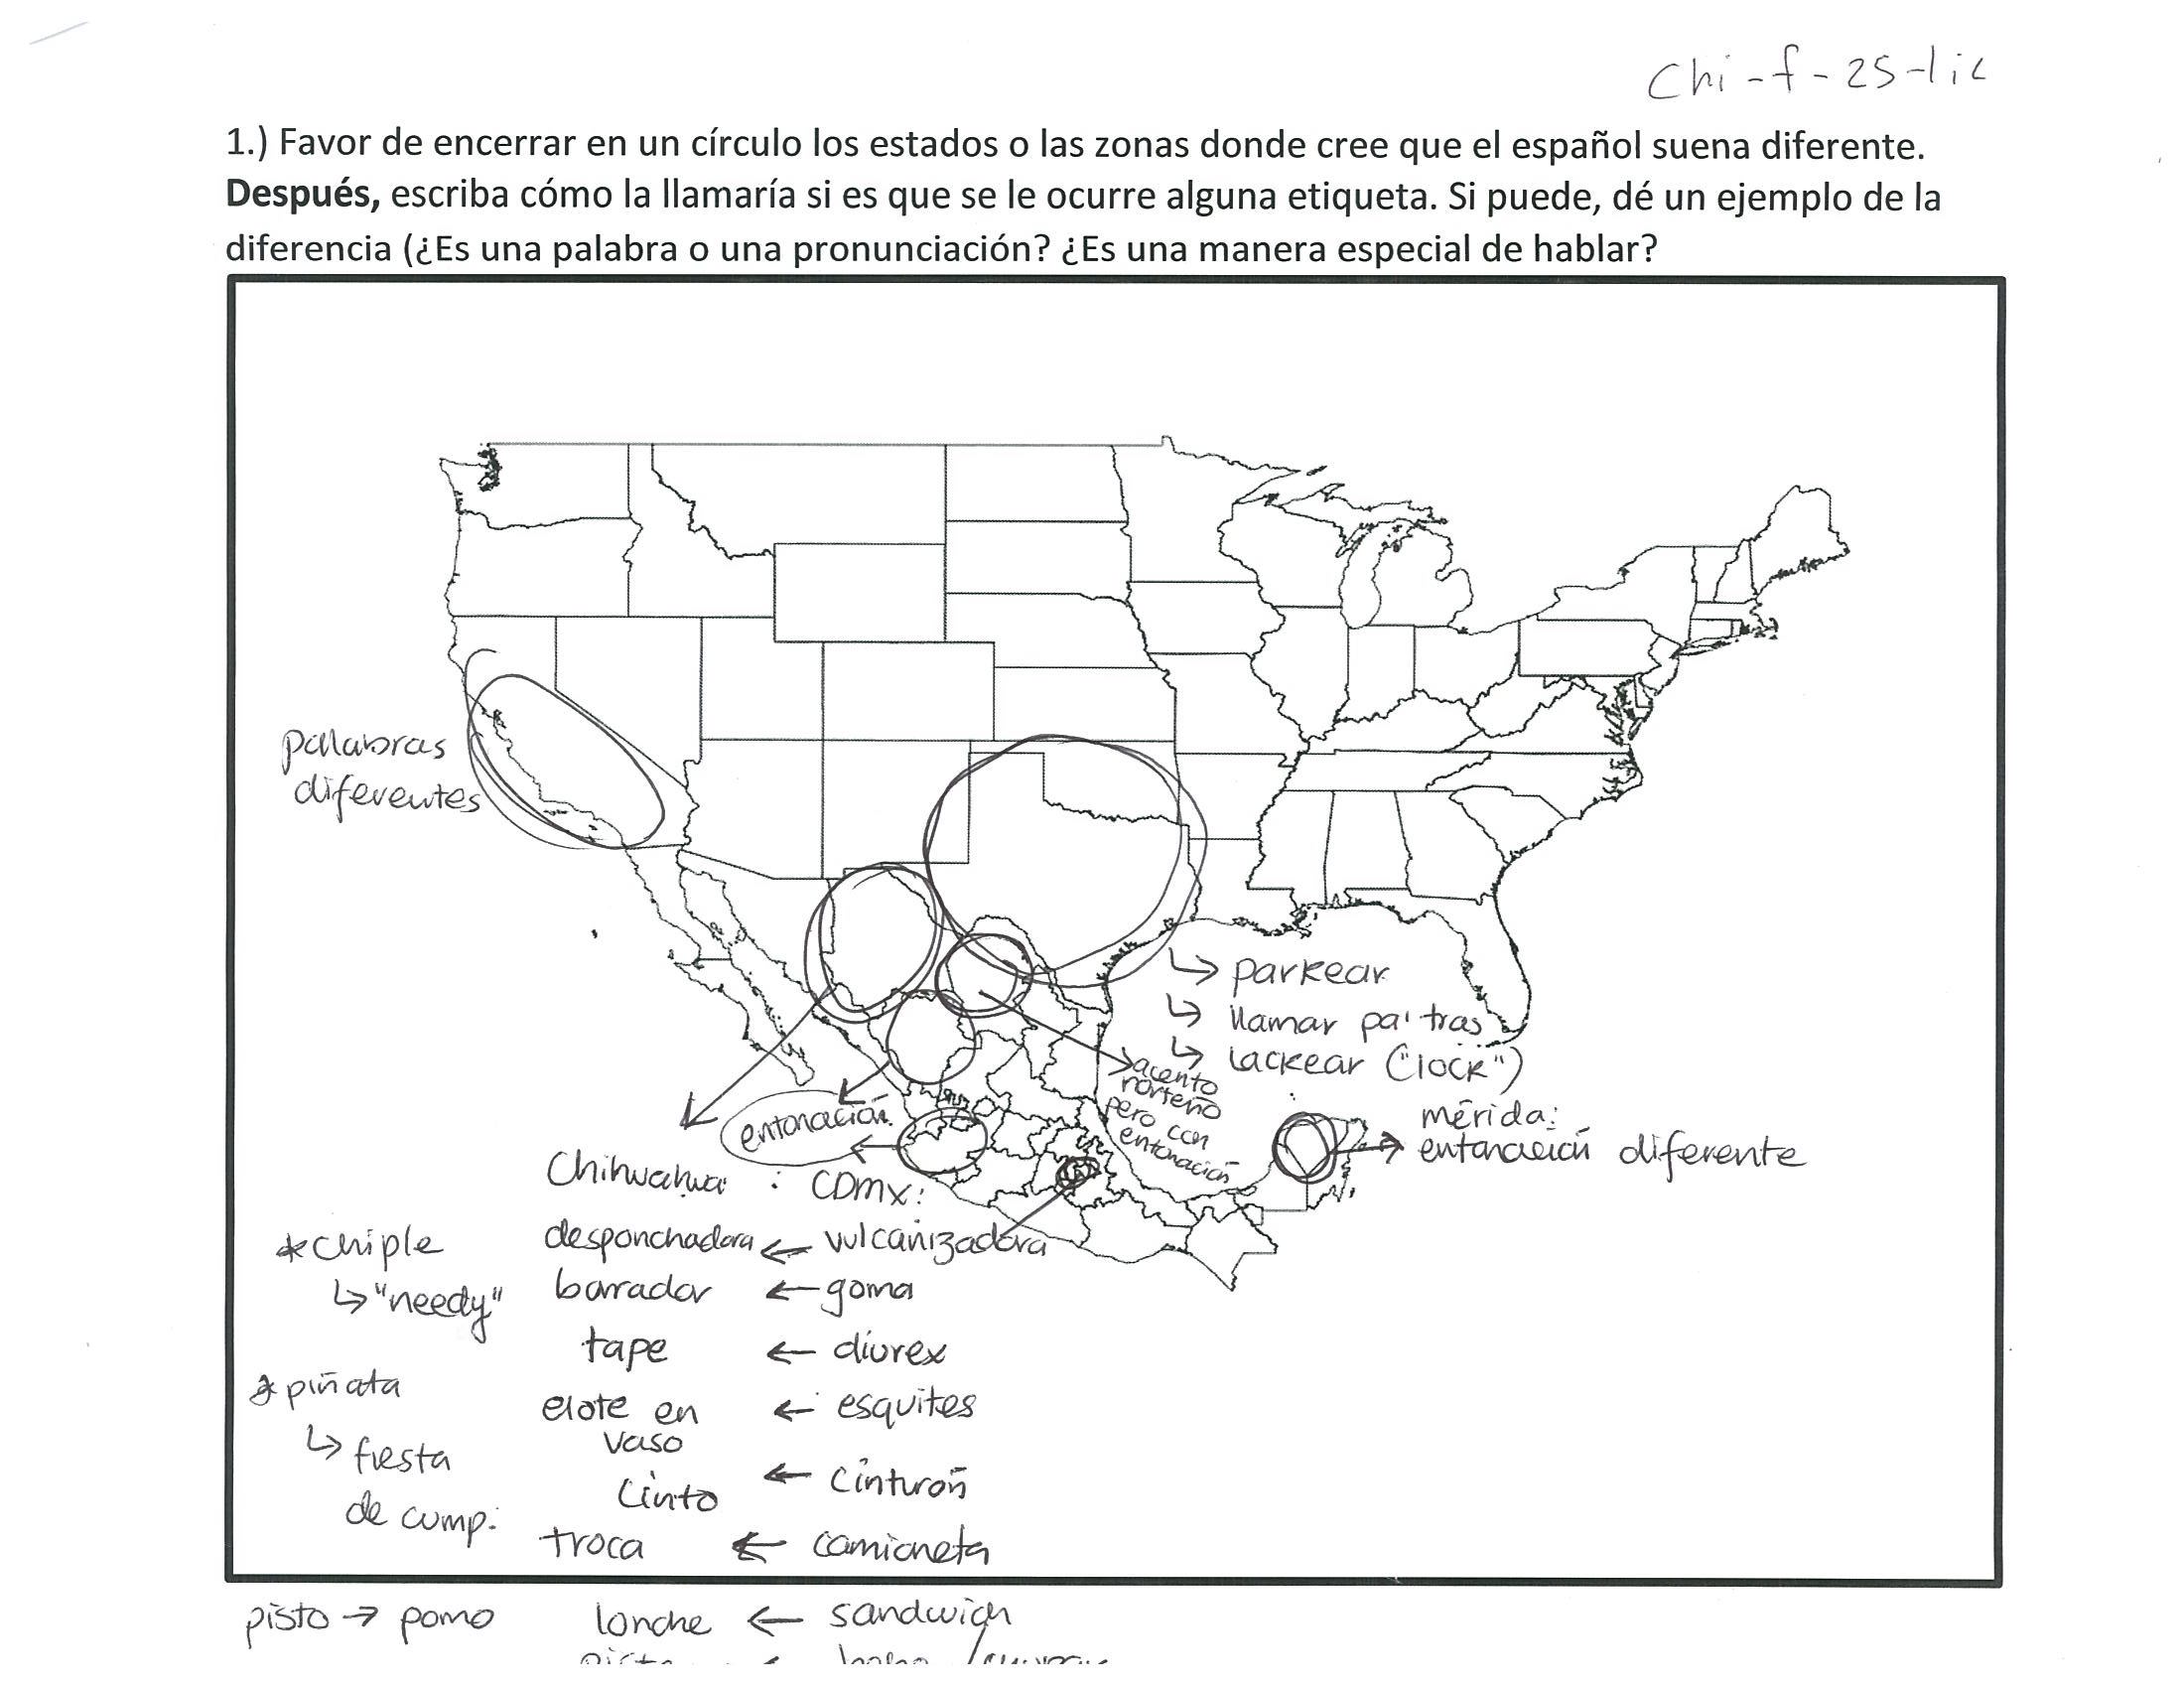 Chi-f-25-lic
1.) Favor de encerrar en un círculo los estados o las zonas donde cree que el español suena diferente.
Después, escriba cómo la llamaría si es que se le ocurre alguna etiqueta. Si puede, dé un ejemplo de la
diferencia (¿Es una palabra o una pronunciación? ¿Es una manera especial de hablar?
palabras
diferentes
↳ parkear
↳ llamar pa' tras
↳ lackear ("lock")
acento
norteño
pero con
entonación
entonación
mérida:
entonación diferente
Chihuahua : CDMX:
desponchadora ← vulcanizadora
borrador ← goma
tape ← diurex
elote en ← esquites
vaso
cinto ← cinturón
troca ← camioneta
* chiple
↳ "needy"
* piñata
↳ fiesta
de cump.
pisto → pomo
lonche ← sandwich